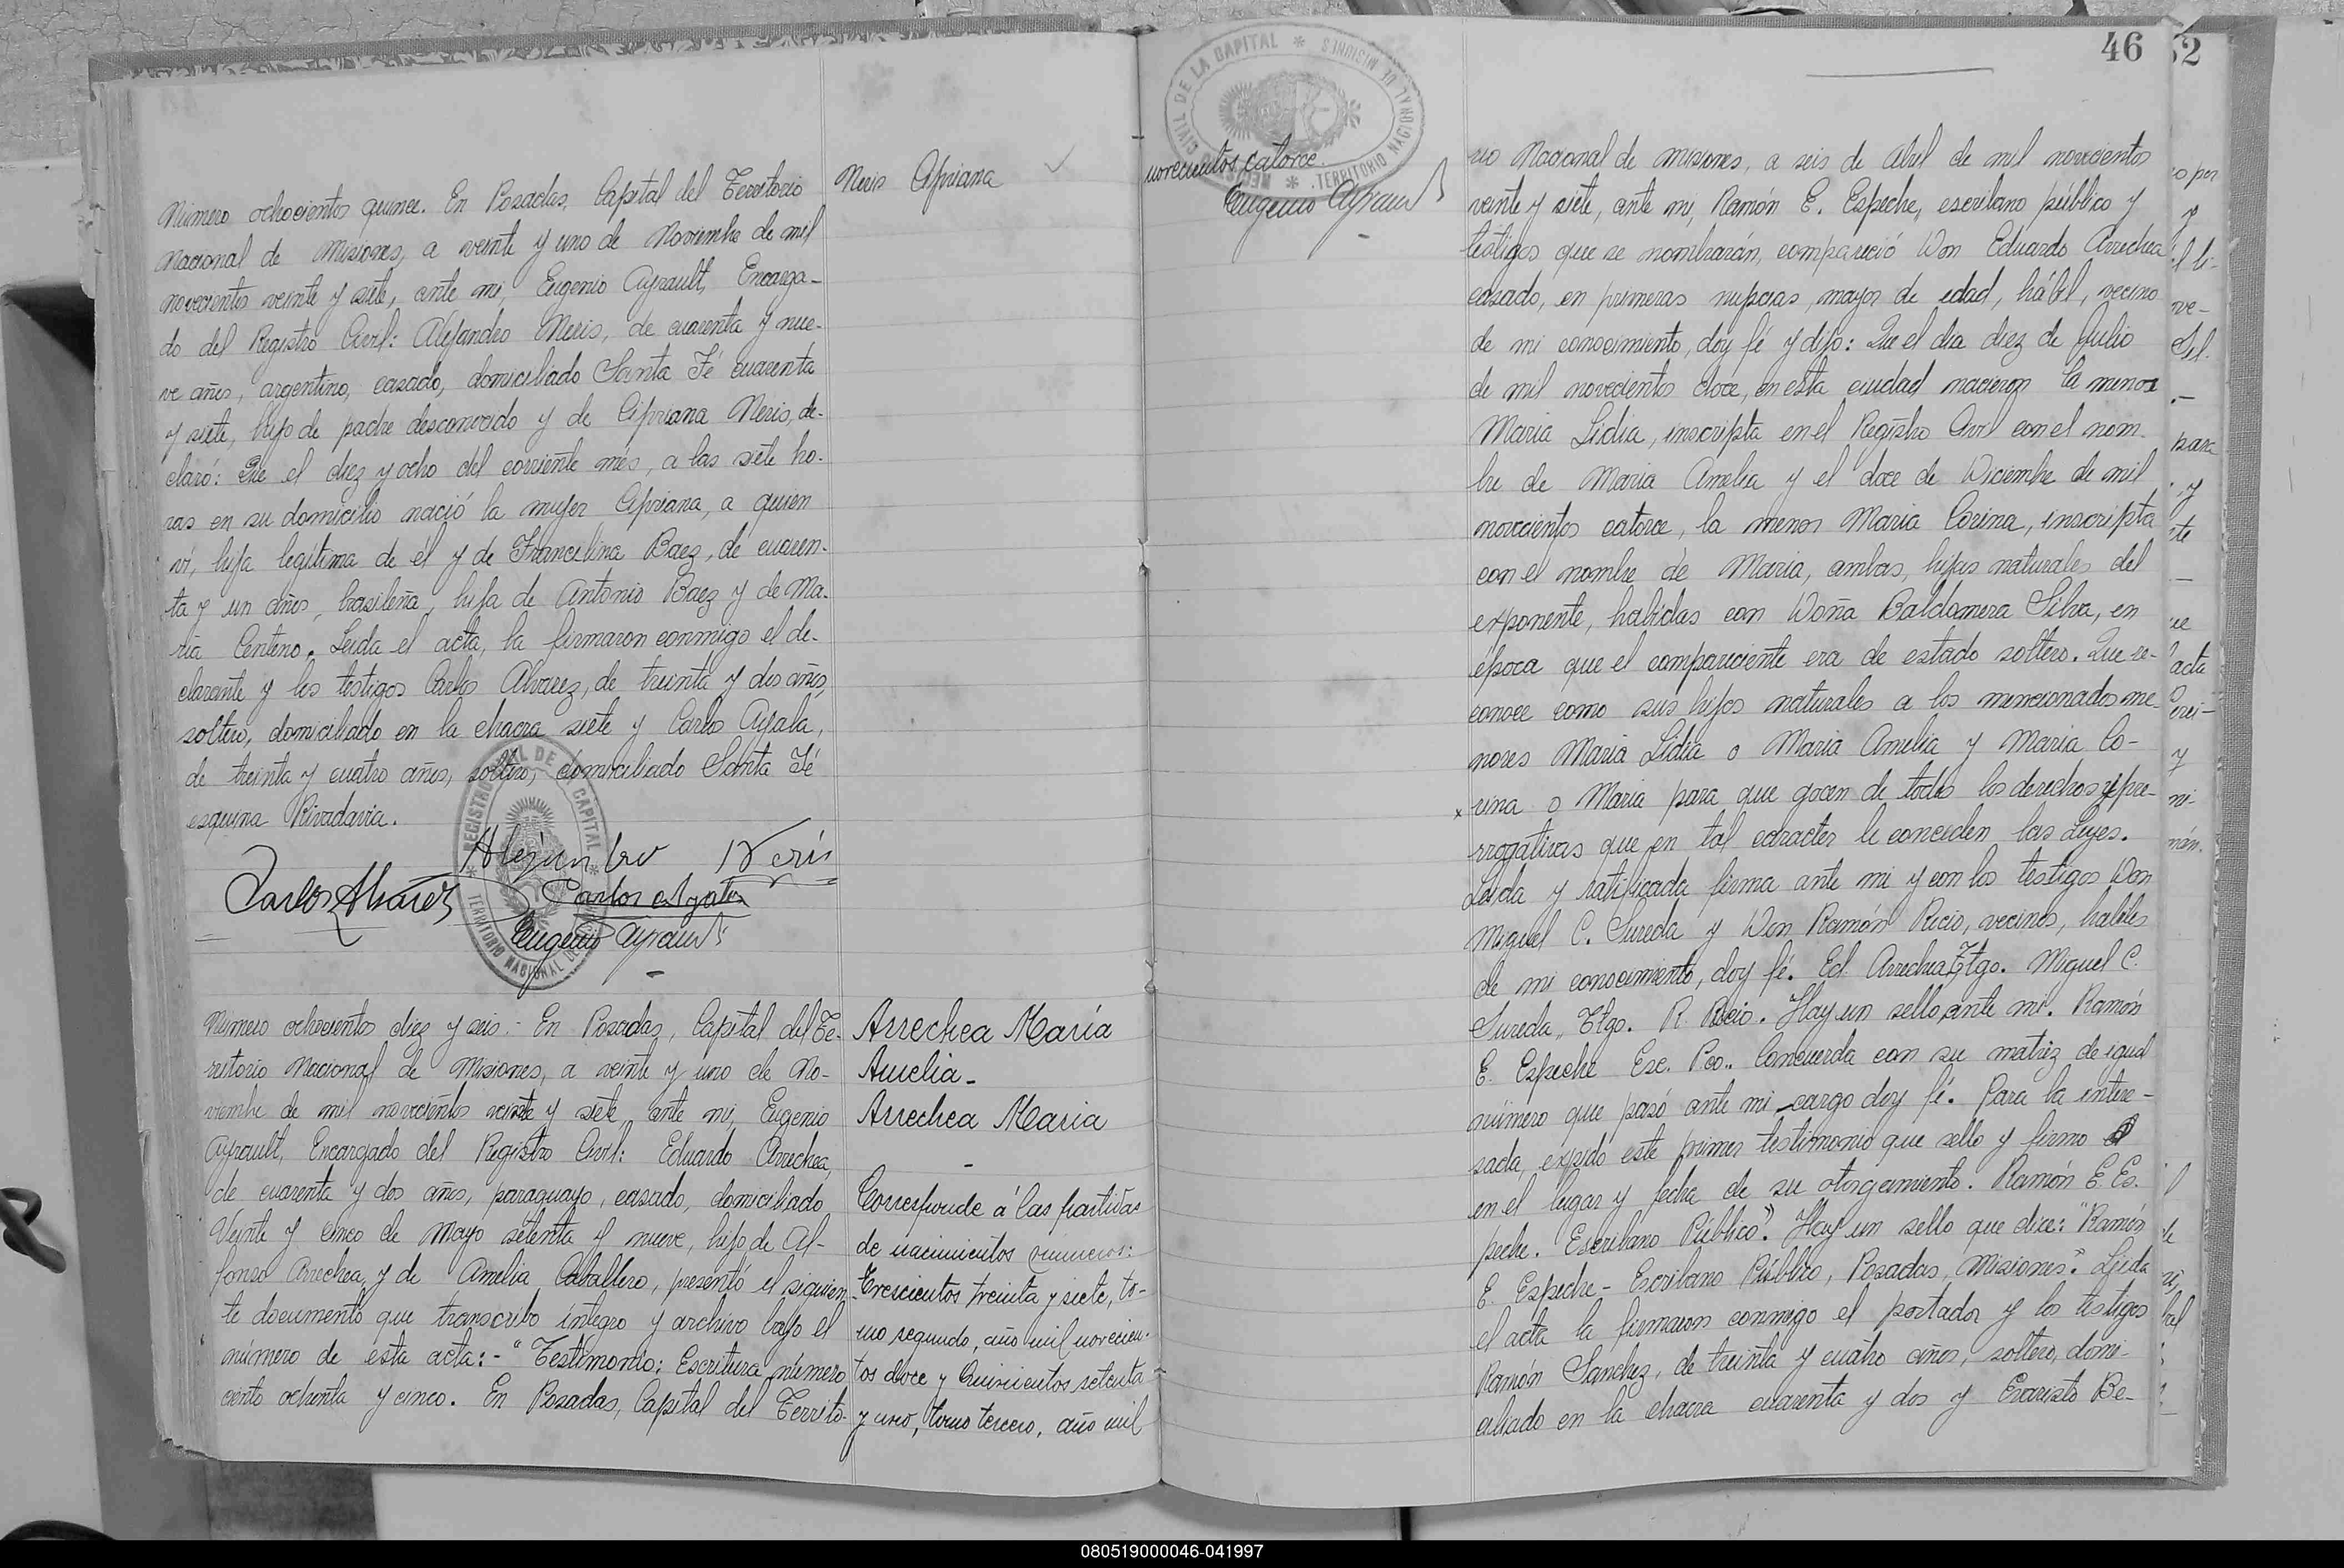 Número ochocientos quince. En Posadas, Capital del Territorio
Nacional de Misiones, a veinte y uno de Noviembre de mil
novecientos veinte y siete, ante mi, Eugenio Ayrault, Encarga-
do del Registro Civil: Alejandro Neris, de cuarenta y nue-
ve años, argentino, casado, domiciliado Santa Fé cuarenta
y siete, hijo de padre desconocido y de Cipriana Neris, de-
claró: Que el diez y ocho del corriente mes, a las siete ho-
ras en su domicilio nació la mujer Cipriana, a quien
ví, hija legítima de él y de Francelina Baez, de cuaren-
ta y un años, brasileña, hija de Antonio Baez y de Ma-
ría Centeno. Leida el acta, la firmaron conmigo el de-
clarante y los testigos Carlos Alvarez, de treinta y dos años,
soltero, domiciliado en la chacra siete y Carlos Ayala,
de treinta y cuatro años, soltero, domiciliado Santa Fé
esquina Rivadavia.
Alejandro Neris
Carlos Alvarez Carlos Ayala
Eugenio Ayrault
REGISTRO CIVIL DE LA CAPITAL
TERRITORIO NACIONAL DE
Neris Cipriana
Número ochocientos diez y seis.- En Posadas, Capital del Te-
rritorio Nacional de Misiones, a veinte y uno de No-
viembre de mil novecientos veinte y siete, ante mi, Eugenio
Ayrault, Encargado del Registro Civil: Eduardo Arrechea,
de cuarenta y dos años, paraguayo, casado, domiciliado
Veinte y cinco de Mayo setenta y nueve, hijo de Al-
fonso Arrechea y de Amelia Caballero, presentó el siguien-
te documento que transcribo íntegro y archivo bajo el
número de esta acta:- "Testimonio: Escritura número
ciento ochenta y cinco. En Posadas, Capital del Territo-
Arrechea María
Amelia-
Arrechea María
-
Corresponde á las partidas
de nacimientos números:
Trescientos treinta y siete, to-
mo segundo, año mil novecien-
tos doce y Quinientos setenta
y uno, tomo tercero, año mil
novecientos catorce.
Eugenio Ayrault
CIVIL DE LA CAPITAL
TERRITORIO NACIONAL DE MISIONES
46
rio Nacional de Misiones, a seis de Abril de mil novecientos
veinte y siete, ante mi, Ramón E. Espeche, escribano público y
testigos que se nombrarán, compareció Don Eduardo Arrechea
casado, en primeras nupcias, mayor de edad, hábil, vecino
de mi conocimiento, doy fé y dijo: Que el dia diez de Julio
de mil novecientos doce, en esta ciudad nacieron la menor
Maria Lidia, inscripta en el Registro Civil con el nom-
bre de Maria Amelia y el doce de Diciembre de mil
novecientos catorce, la menor Maria Corina, inscripta
con el nombre de Maria, ambas, hijas naturales del
exponente, habidas con Doña Baldomera Silva, en
época que el compareciente era de estado soltero. Que re-
conoce como sus hijos naturales a los mencionados me-
nores Maria Lidia o Maria Amelia y Maria Co-
x rina o Maria para que gocen de todos los derechos y pre-
rrogativas que en tal caracter le conceden las Leyes.
Leida y ratificada firma ante mi y con los testigos Don
Miguel C. Sureda y Don Ramón Rocio, vecinos, hábiles
de mi conocimiento, doy fé. Ed. Arrechea. Ttgo. Miguel C.
Sureda, Ttgo. R. Rocio. Hay un sello, ante mi. Ramón
E. Espeche Esc. Pco.. Concuerda con su matriz de igual
número que pasó ante mi cargo doy fé. Para la intere-
sada, expido este primer testimonio que sello y firmo
en el lugar y fecha de su otorgamiento. Ramón E. Es-
peche. Escribano Público". Hay un sello que dice: "Ramón
E. Espeche- Escribano Público, Posadas, Misiones." Leida
el acta la firmaron conmigo el portador y los testigos
Ramón Sanchez, de treinta y cuatro años, soltero, domi-
ciliado en la chacra cuarenta y dos y Evaristo Be-
080519000046-041997